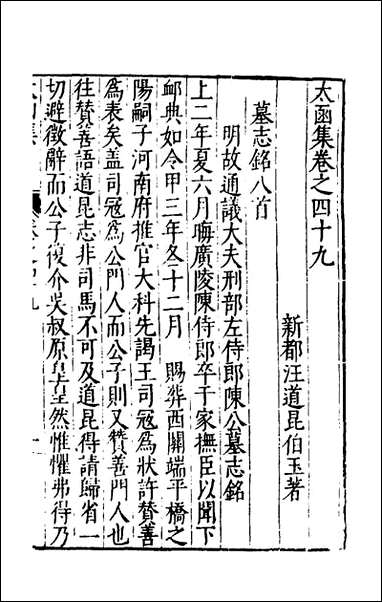 太函集卷之四十九
新都汪道昆伯玉著
墓志銘八首
明故通議大夫刑部左侍郎陳公墓志銘
上二年夏六月晦廣陵陳侍郎卒于家撫臣以聞下
卹典如令甲三年冬十二月 賜葬西關端平橋之
陽嗣子河南府推官大科先謁王司寇為狀許贊善
為表矣盖司寇為公門人而公子則又贊善門人也
往贊善語道昆志非司馬不可及道昆得請歸省一
切避徵辭而公子復介吳叔原皇皇然惟懼弗得乃